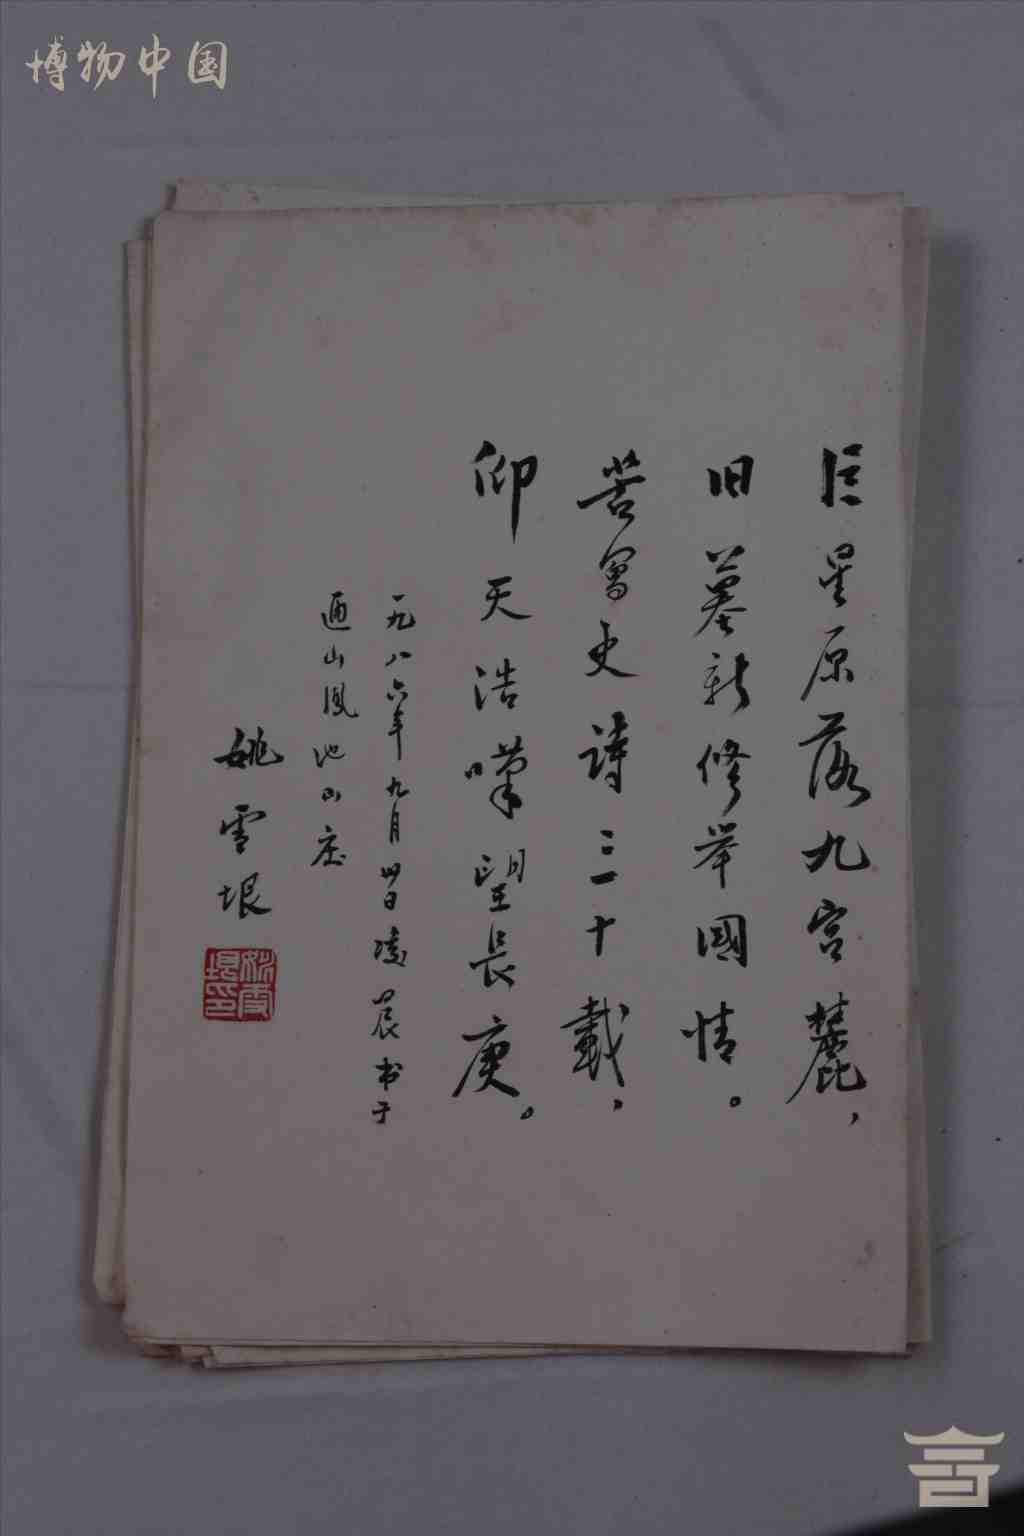 博物中国
巨星原落九宫麓，
旧墓新修举國情。
苦写史詩三十載，
仰天浩嘆望長庚。
一九八六年九月四日凌晨书于
通山凤池山庄
姚雪垠
姚雪垠印